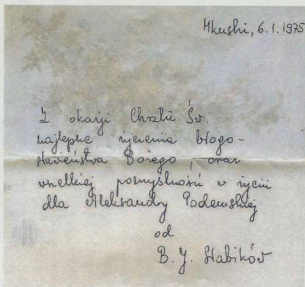 Mkushi, 6.1.1975
Z okazji Chrztu Św.
najlepsze życzenia błogo-
sławieństwa Bożego, oraz
wszelkiej pomyślności w życiu
dla Aleksandry Godewskiej
od
B. J. Słabików